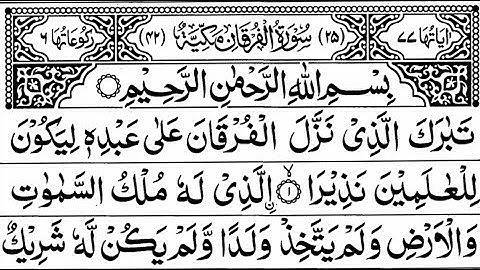 اٰیَاتُهَا ۷۷ (۲۵) سُوْرَةُ الْفُرْقَانِ مَكِّیَّةٌ (۴۲) رُكُوْعَاتُهَا ۶
بِسْمِ اللّٰهِ الرَّحْمٰنِ الرَّحِیْمِ
تَبٰرَكَ الَّذِیْ نَزَّلَ الْفُرْقَانَ عَلٰی عَبْدِهٖ لِیَكُوْنَ
لِلْعٰلَمِیْنَ نَذِیْرَا ۙ﴿۱﴾ ۣالَّذِیْ لَهٗ مُلْكُ السَّمٰوٰتِ
وَالْاَرْضِ وَلَمْ یَتَّخِذْ وَلَدًا وَّلَمْ یَكُنْ لَّهٗ شَرِیْكٌ